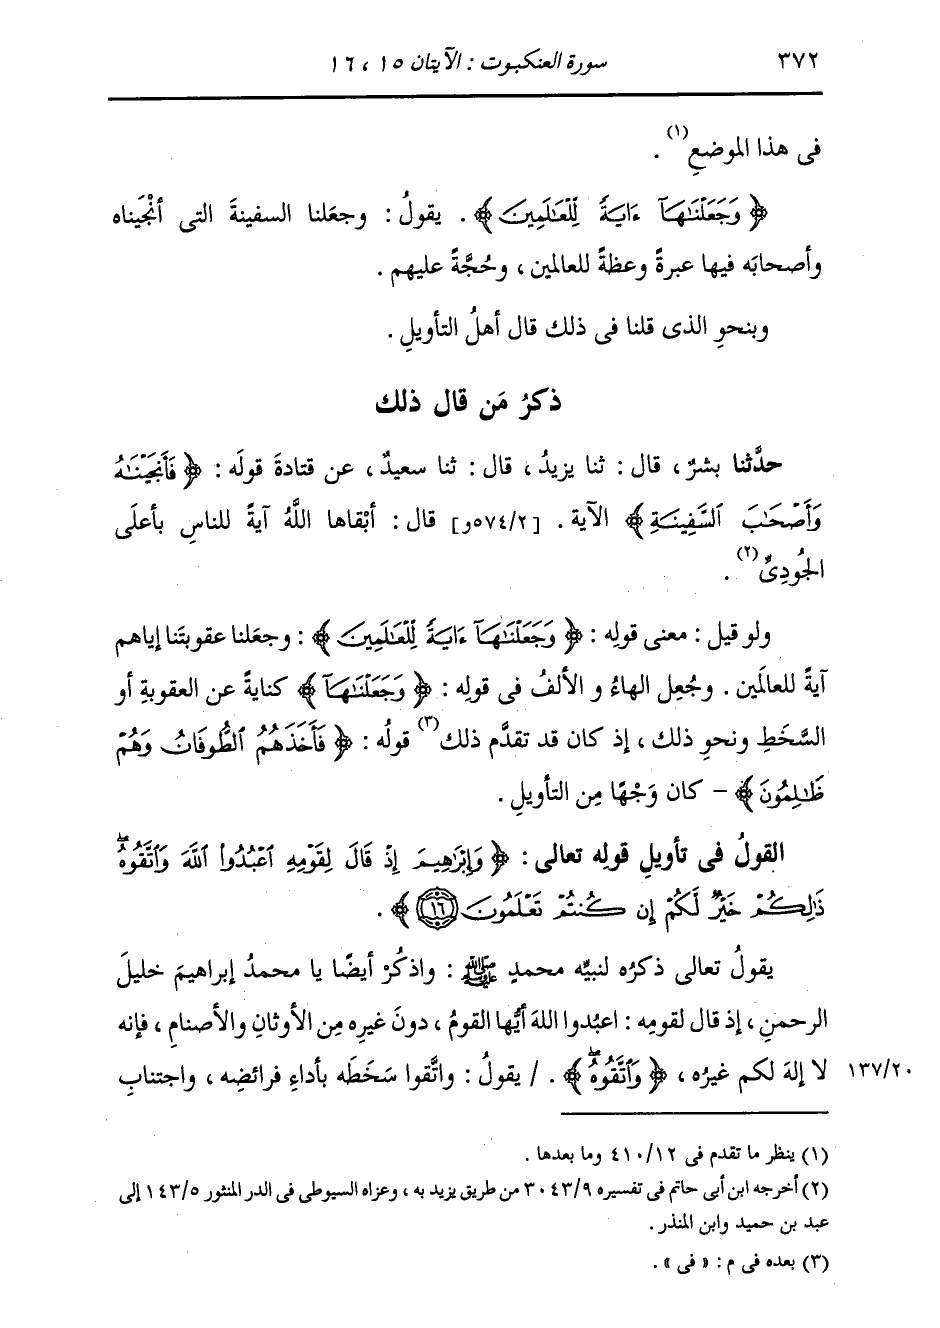 ٣٧٢ سورة العنكبوت : الآيتان ١٥ ، ١٦
فى هذا الموضعِ(١) .
﴿ وَجَعَلْنَٰهَآ ءَايَةً لِّلْعَٰلَمِينَ ﴾ . يقولُ : وجعَلنا السفينةَ التى أنْجَيناه
وأصحابَه فيها عبرةً وعظةً للعالمين ، وحُجَّةً عليهم .
وبنحوِ الذى قلنا فى ذلك قال أهلُ التأويلِ .
ذكرُ مَن قال ذلك
حدَّثنا بشرٌ ، قال : ثنا يزيدُ ، قال : ثنا سعيدٌ ، عن قتادةَ قولَه : ﴿ فَأَنجَيْنَٰهُ
وَأَصْحَٰبَ ٱلسَّفِينَةِ ﴾ الآية . [٥٧٤/٢و] قال : أبْقاها اللَّهُ آيةً للناسِ بأعلَى
الجُودِىِّ(٢) .
ولو قيل : معنى قولِه : ﴿ وَجَعَلْنَٰهَآ ءَايَةً لِّلْعَٰلَمِينَ ﴾ : وجعَلنا عقوبتَنا إياهم
آيةً للعالَمين . وجُعِل الهاءُ و الألفُ فى قولِه : ﴿ وَجَعَلْنَٰهَآ ﴾ كنايةً عن العقوبةِ أو
السَّخَطِ ونحوِ ذلك ، إذ كان قد تقدَّم ذلك(٣) قولُه : ﴿ فَأَخَذَهُمُ ٱلطُّوفَانُ وَهُمْ
ظَٰلِمُونَ ﴾ – كان وَجْهًا مِن التأويلِ .
القولُ فى تأويلِ قولِه تعالى : ﴿ وَإِبْرَٰهِيمَ إِذْ قَالَ لِقَوْمِهِ ٱعْبُدُوا۟ ٱللَّهَ وَٱتَّقُوهُۖ
ذَٰلِكُمْ خَيْرٌ لَّكُمْ إِن كُنتُمْ تَعْلَمُونَ ١٦ ﴾ .
يقولُ تعالى ذكرُه لنبيِّه محمدٍ ﷺ : واذكُرْ أيضًا يا محمدُ إبراهيمَ خليلَ
الرحمنِ ، إذ قال لقومِه : اعبُدوا اللهَ أيُّها القومُ ، دونَ غيرِه مِن الأوثانِ والأصنامِ ، فإنه
١٣٧/٢٠ لا إلهَ لكم غيرُه ، ﴿ وَٱتَّقُوهُۖ ﴾ . / يقولُ : واتَّقوا سَخَطَه بأداءِ فرائضِه ، واجتنابِ
(١) ينظر ما تقدم فى ٤١٠/١٢ وما بعدها .
(٢) أخرجه ابن أبى حاتم فى تفسيره ٣٠٤٣/٩ من طريق يزيد به ، وعزاه السيوطى فى الدر المنثور ١٤٣/٥ إلى
عبد بن حميد وابن المنذر .
(٣) بعده فى م : « فى » .